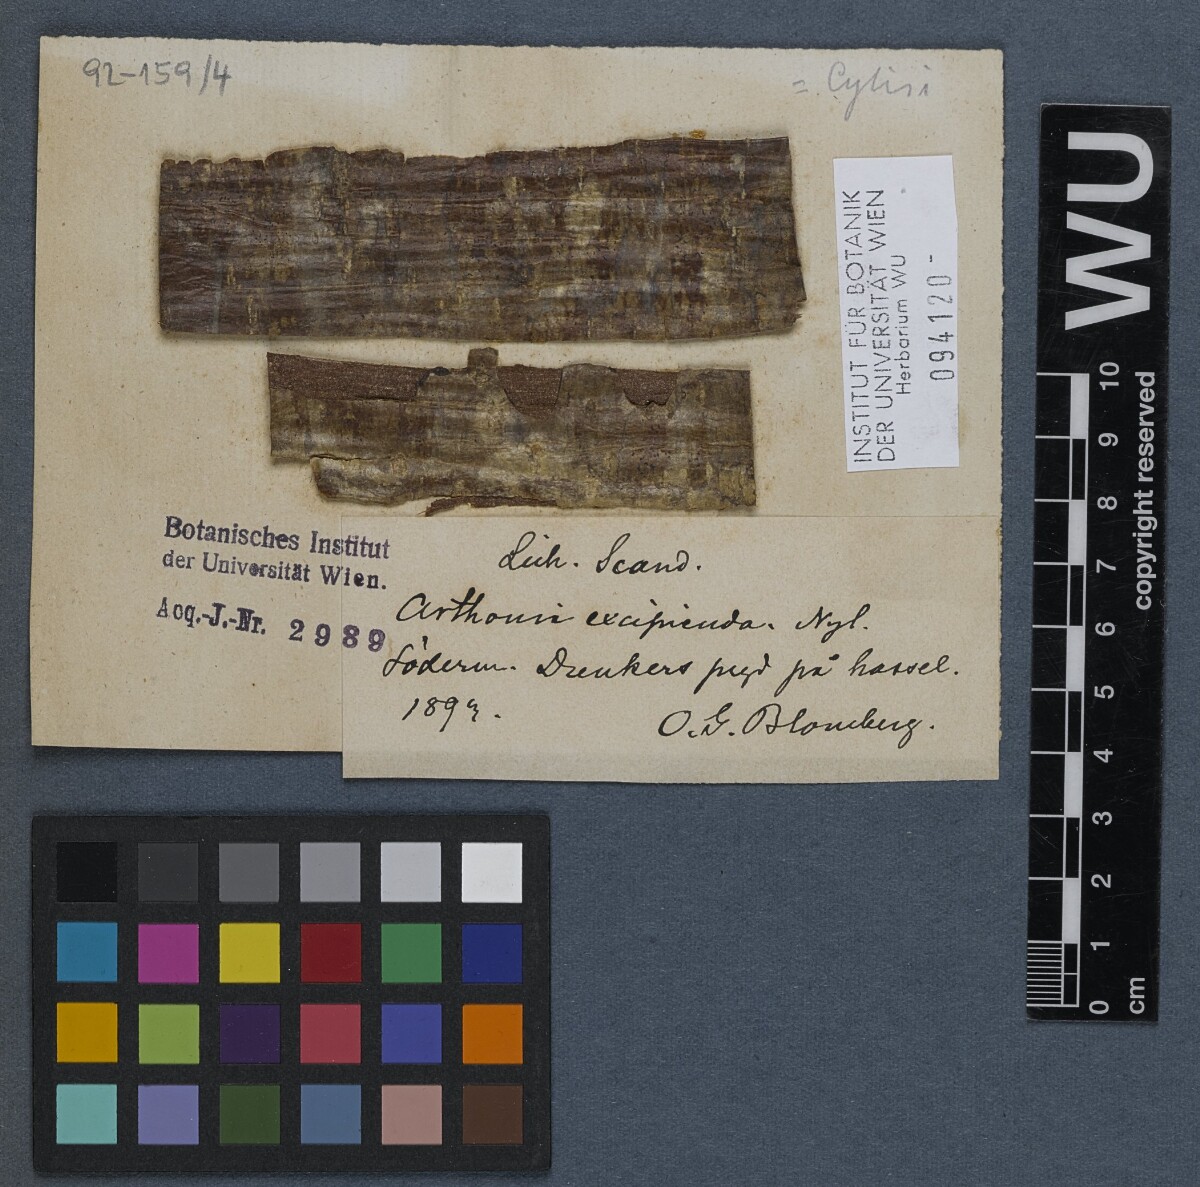 92-159/4
= Cytisi
INSTITUT FÜR BOTANIK
DER UNIVERSITÄT WIEN
Herbarium WU
094120-
Botanisches Institut
der Universität Wien.
Acq.-J.-Nr. 2989
Lich. Scand.
Arthonia excipienda. Nyl.
Söderm. på hassel.
O. G. Blomberg.
WU
copyright reserved
10
9
8
7
6
5
4
3
2
1
0
cm